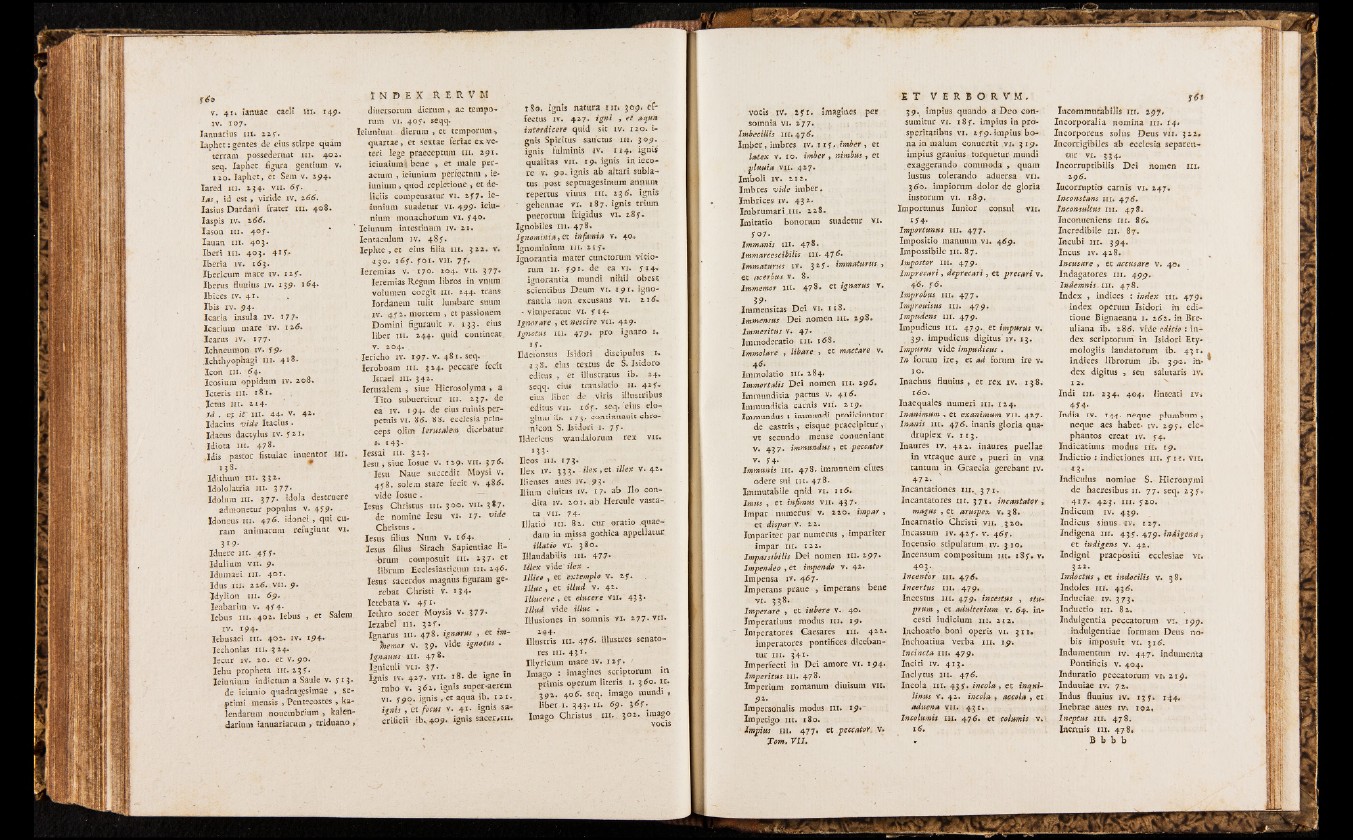 560
INDEX RERVM
v. 41. ianuae caeli III. 149.
IV. 107.
Ianuarius III. 225.
Iaphet: gentes de eius stirpe quam
terram possederunt III. 402.
seq. Iaphet figura gentium v.
120. Iaphet, et Sem v. 294.
Iared III. 234. VII. 65.
Ias, id est, viride IV. 266.
Iasius Dardani frater III. 408.
Iaspis IV. 266.
Iason III. 405.
Iauan III. 403.
Iberi III. 403. 415.
Iberia IV. 163.
Ibericum mare IV. 125.
Iberus fluuius IV. 139. 164.
Ibices IV. 41.
Ibis IV. 94.
Icaria insula IV. 177.
Icarium mare IV. 126.
Icarus IV. 177.
Ichneumon IV. 59.
Ichthyophagi III. 418.
Icon III. 64.
Icosium oppidum IV. 208.
Icteris III. 181.
Ictus III. 214.
Id, et it III. 44. v. 42.
Idacius vide Itacius.
Idaeus dactylus IV. 521.
Idiota III. 478.
Idis pastor fistulae inuentor III.
138.
Idithum III. 332.
Idololatria III. 377.
Idolum III. 377. idola destruere
admonetur populus v. 459.
Idoneus III. 476. idonei, qui curam
animarum refugiunt VI.
319.
Iduere III. 455.
Idulium VII. 9.
Idumaei III. 401.
Idus III. 226. VII. 9.
Idylion III. 69.
Ieabarim v. 454.
Iebus III. 402. Iebus, et Salem
IV. 194.
Iebusaei III. 402. IV. 194.
Iechonias III. 324.
Iecur IV. 20. et v. 90.
Iehu propheta III. 235.
Ieiunium indictum a Saule v. 513.
de ieiunio quadragesimae, septimi
mensis, Pentecostes, kalendarum
nouembrium, kalendarum
ianuariarum, triduano,
diuersorum dierum, ac temporum
VI. 405. seqq.
Ieiunium dierum, et temporum,
quartae, et sextae feriae ex veteri
lege praeceptum III. 291.
ieiunium bene, et male peractum,
ieiunium perfectum, ieiunium,
quod repletione, et deliciis
compensatur VI. 257. ieiunium
suadetur VI. 499. ieiunium
monachorum VI. 540.
Ieiunum intestinum IV. 21.
Ientaculum IV. 485.
Iephte, et eius filia III. 322. v.
130. 165. 501. VII. 75.
Ieremias v. 170. 204. VII. 377.
Ieremias Regum libros in vnum
volumen coegit III. 244. trans
Iordanem tulit lumbare suum
IV. 452. mortem, et passionem
Domini figurauit v. 133. eius
liber III. 244. quid contineat
v. 204.
Iericho IV. 197. v. 481. seq.
Ieroboam III. 324. peccare fecit
Israel III. 342.
Ierusalem, siue Hierosolyma, a
Tito subuertitur III. 237. de
ea IV. 194. de eius ruinis perpetuis
VI. 86. 88. ecclesia principis
olim Ierusalem dicebatur
v. 143.
Iessai III. 323.
Iesu, siue Iosue v. 129. VII. 376.
Iesu Naue succedit Moysi v.
458. solem stare fecit v. 486.
vide Iosue.
Iesus Christus III. 300. VII. 387.
de nomine Iesu VI. 17. vide
Christus.
Iesus filius Num v. 164.
Iesus filius Sirach Sapientiae librum
composuit III. 237. et
librum Ecclesiasticum III. 246.
Iesus sacerdos magnus figuram gerebat
Christi v. 134.
Ietebata v. 451.
Iethro socer Moysis v. 377.
Iezabel III. 325.
Ignarus III. 478. ignarus, et immemor
v. 39. vide ignotus.
Ignauus III. 478.
Igniculi VII. 37.
Ignis IV. 427. VII. 18. de igne in
rubo v. 362. ignis super aerem
VI. 590. ignis, et aqua ib. 121.
ignis, et focus v. 41. ignis sacrificii
ib. 409. ignis sacer III.
180. ignis natura III. 309. effectus
IV. 427. igni, et aqua
interdicere quid sit IV. 120. ignis
Spiritus sanctus III. 309.
ignis fulminis IV. 114. ignis
qualitas VII. 19. ignis in iecore
v. 90. ignis ab altari sublatus
post septuagesimum annum
repertus viuus III. 236. ignis
gehennae VI. 187. ignis trium
puerorum frigidus VI. 285.
Ignobiles III. 478.
Ignominia, et infamia v. 40.
Ignominium III. 215.
Ignorantia mater cunctorum vitiorum
II. 591. de ea VI. 514.
ignorantia mundi nihil obest
scientibus Deum VI. 191. ignorantia
non excusans VI. 216.
vituperatur VI. 514.
Ignorare, et nescire VII. 429.
Ignotus III. 479. pro ignaro I.
15.
Ildefonsus Isidori discipulus I.
138. eius textus de S. Isidoro
editus, et illustratus ib. 24.
seqq. eius translatio II. 425.
eius liber de viris illustribus
editus VII. 165. seq. eius elogium
ib. 173. continuauit chronicon
S. Isidori I. 75.
Ildericus wandalorum rex VII.
133.
Ileos III. 173.
Ilex IV. 333. ilex, et illex v. 42.
Ilienses aues IV. 93.
Ilium ciuitas IV. 17. ab Ilo condita
IV. 201. ab Hercule vastata
VII. 74.
Illatio III. 82. cur oratio quaedam
in missa gothica appellatur
illatio VI. 380.
Illaudabilis III. 477.
Illex vide ilex.
Illico, et extemplo v. 25.
Illuc, et illud v. 42.
Illucere, et elucere VII. 433.
Illud vide illuc.
Illusiones in somnis VI. 277. VII.
244.
Illustris III. 476. illustres senatores
III. 431.
Illyricum mare IV. 125.
Imago: imagines scriptorum in
primis operum literis I. 360. II.
392. 406. seq. imago mundi,
liber I. 343. II. 69. 365.
Imago Christus III. 302. imago
vocis
ET VERBORVM. 561
vocis IV. 251. imagines per
somnia VI. 277.
Imbecillis III. 476.
Imber, imbres IV. 115. imber, et
latex v. 10. imber, nimbus, et
pluuia VII. 427.
Imboli IV. 212.
Imbres vide imber.
Imbrices IV. 432.
Imbrumari III. 228.
Imitatio bonorum suadetur VI.
507.
Immanis III. 478.
Immarcescibilis III. 476.
Immaturus IV. 325. immaturus,
et acerbus v. 8.
Immemor III. 478. et ignarus v.
39.
Immensitas Dei VI. 118.
Immensus Dei nomen III. 298.
Immeritus v. 47.
Immoderatio III. 168.
Immolare, libare, et mactare v.
46.
Immolatio III. 284.
Immortalis Dei nomen III. 296.
Immunditia partus v. 416.
Immunditia carnis VII. 219.
Immundus: immundi proiiciuntur
de castris, eisque praecipitur,
vt secundo mense conueniant
v. 437. immundus, et peccator
v. 54.
Immunis III. 478. immunem ciues
odere sui III. 478.
Immutabile quid VI. 116.
Imus, et infimus VII. 437.
Impar numerus v. 220. impar,
et dispar v. 22.
Impariter par numerus, impariter
impar III. 122.
Impassibilis Dei nomen III. 297.
Impendeo, et impendo v. 42.
Impensa IV. 467.
Imperans praue, imperans bene
VI. 338.
Imperare, et iubere v. 40.
Imperatiuus modus III. 19.
Imperatores Caesares III. 422.
imperatores pontifices dicebantur
III. 341.
Imperfecti in Dei amore VI. 194.
Imperitus III. 478.
Imperium romanum diuisum VII.
92.
Impersonalis modus III. 19.
Impetigo III. 180.
Impius III. 477. et peccator v.
Tom. VII.
39. impius quando a Deo consumitur
VI. 185. impius in prosperitatibus
VI. 159. impius bona
in malum conuertit VI. 319.
impius grauius torquetur mundi
exaggerando commoda, quam
iustus tolerando aduersa VII.
360. impiorum dolor de gloria
iustorum VI. 189.
Importunus Iunior consul VII.
154.
Importunus III. 477.
Impositio manuum VI. 469.
Impossibile III. 87.
Impostor III. 479.
Imprecari, deprecari, et precari v.
46. 56.
Improbus III. 477.
Improuisus III. 479.
Impudens III. 479.
Impudicus III. 479. et impurus v.
39. impudicus digitus IV. 13.
Impurus vide impudicus.
In forum ire, et ad forum ire v.
10.
Inachus fluuius, et rex IV. 138.
160.
Inaequales numeri III. 124.
Inanimum, et exanimum VII. 427.
Inanis III. 476. inanis gloria quadruplex
v. 113.
Inaures IV. 422. inaures puellae
in vtraque aure, pueri in vna
tantum in Graecia gerebant IV.
472.
Incantationes III. 371.
Incantatores III. 371. incantator,
magus, et aruspex v. 38.
Incarnatio Christi VII. 320.
Incassum IV. 425. v. 465.
Incensio stipularum IV. 310.
Incensum compositum III. 185. v.
403.
Incentor III. 476.
Incertus III. 479.
Incestus III. 479. incestus, stuprum,
et adulterium v. 64. incesti
iudicium III. 212.
Inchoatio boni operis VI. 311.
Inchoatiua verba III. 19.
Incincta III. 479.
Inciti IV. 413.
Inclytus III. 476.
Incola III. 435. incola, et inquilinus
v. 42. incola, accola, et
aduena VII. 431.
Incolumis III. 476. et columis v.
16.
Incommutabilis III. 297.
Incorporalia nomina III. 14.
Incorporeus solus Deus VII. 322.
Incorrigibiles ab ecclesia separentur
VI. 334.
Incorruptibilis Dei nomen III.
296.
Incorruptio carnis VI. 247.
Inconstans III. 476.
Inconsultus III. 478.
Inconueniens III. 86.
Incredibile III. 87.
Incubi III. 394.
Incus IV. 428.
Incusare, et accusare v. 40.
Indagatores III. 499.
Indemnis III. 478.
Index, indices: index III. 479.
index operum Isidori in editione
Bignaeana I. 262. in Breuliana
ib. 286. vide editio: index
scriptorum in Isidori Etymologiis
laudatorum ib. 431.
indices librorum ib. 392. index
digitus, seu salutaris IV.
12.
Indi III. 234. 404. linteati IV.
454.
India IV. 144. neque plumbum,
neque aes habet IV. 295. elephantos
creat IV. 54.
Indicatiuus modus III. 19.
Indictio: indictiones III. 511. VII.
43.
Indiculus nomine S. Hieronymi
de haeresibus II. 77. seq. 235.
417. 423. III. 520.
Indicum IV. 439.
Indicus sinus IV. 127.
Indigena III. 435. 479. indigena,
et indigens v. 42.
Indigni praepositi ecclesiae VI.
322.
Indoctus, et indocilis v. 38.
Indoles III. 436.
Induciae IV. 373.
Inductio III. 82.
Indulgentia peccatorum VI. 199.
indulgentiae formam Deus nobis
imposuit VI. 316.
Indumentum IV. 447. indumenta
Pontificis v. 404.
Induratio peccatorum VI. 219.
Induuiae IV. 72.
Indus fluuius IV. 135. 144.
Inebrae aues IV. 102.
Ineptus III. 478.
Inermis III. 478.
B b b b